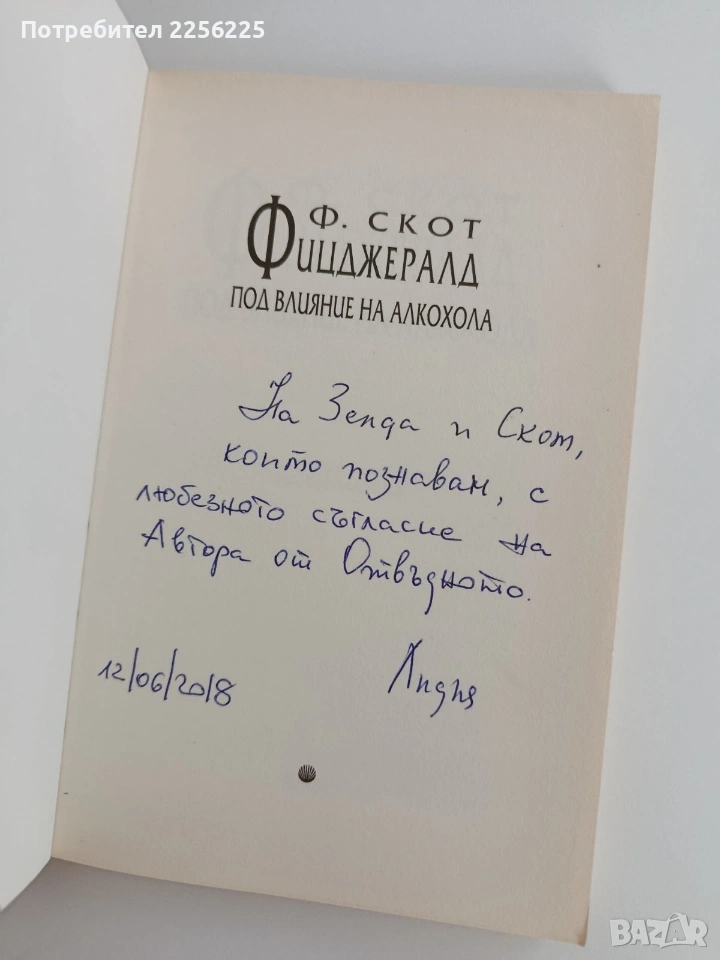 Потребител 2256225
Ф. СКОТ
ФИЦДЖЕРАЛД
ПОД ВЛИЯНИЕ НА АЛКОХОЛА
На Зелда и Скот,
които познавам, с
любезното съгласие на
Автора от Отвъдното.
12/06/2018
Лидия
BAZAR